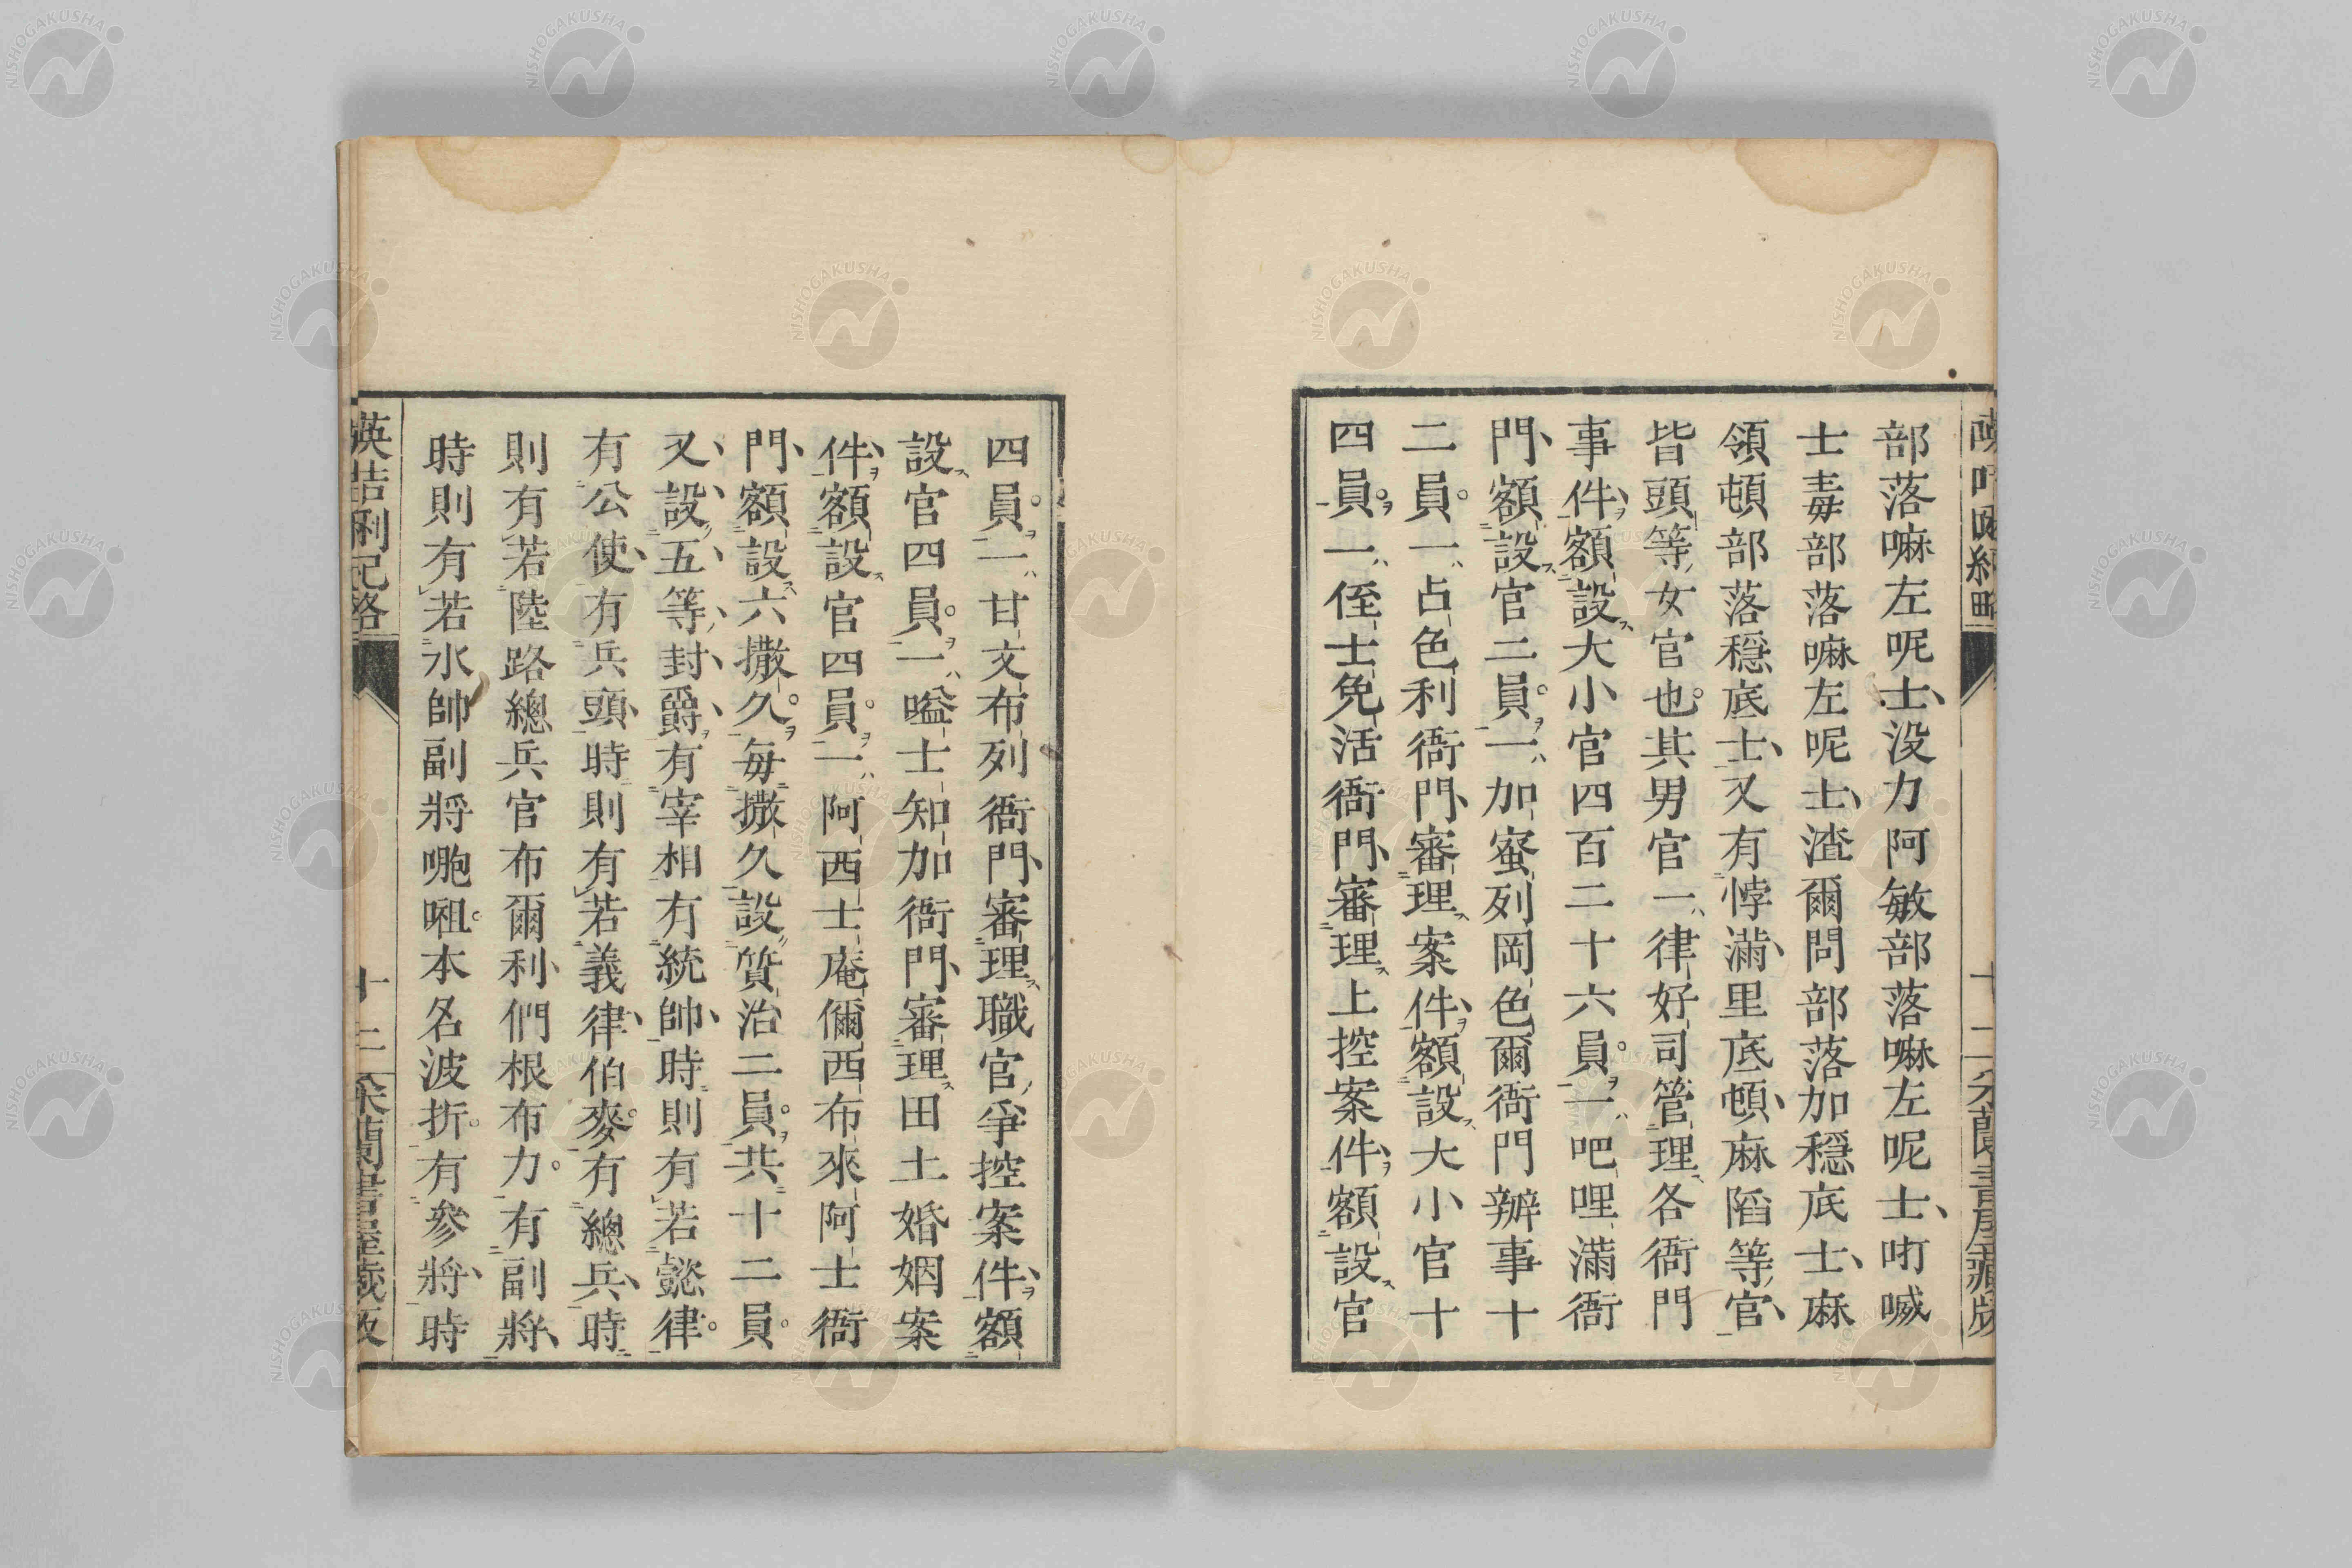 部落嘛左呢士没力阿敏部落嘛左呢士叮噉
士毒部落嘛左呢士渣爾問部落加穏底士麻
領頓部落穏底士又有悖滿里底頓麻䧟等官
皆頭等女官也其男官一律好司管理各衙門
事件額設大小官四百二十六員一吧哩滿衙
門額設官二員一加蜜列岡色爾衙門辦事十
二員一占色利衙門審理案件額設大小官十
四員一侄士免活衙門審理上控案件額設官
四員一甘文布列衙門審理職官爭控案件額
設官四員一嗌士知加衙門審理田土婚姻案
件額設官四員一阿西士庵儞西布來阿士衙
門額設六撒久毎撒久設質治二員共十二員
又設五等封爵有宰相有統帥時則有若懿律
有公使有兵頭時則有若義律伯麥有總兵時
則有若陸路總兵官布爾利們根布力有副將
時則有若水帥副將㗅㖕本名波折有參將時
英咭唎記略
十二
采蘭書屋藏版
NISHOGAKUSHA